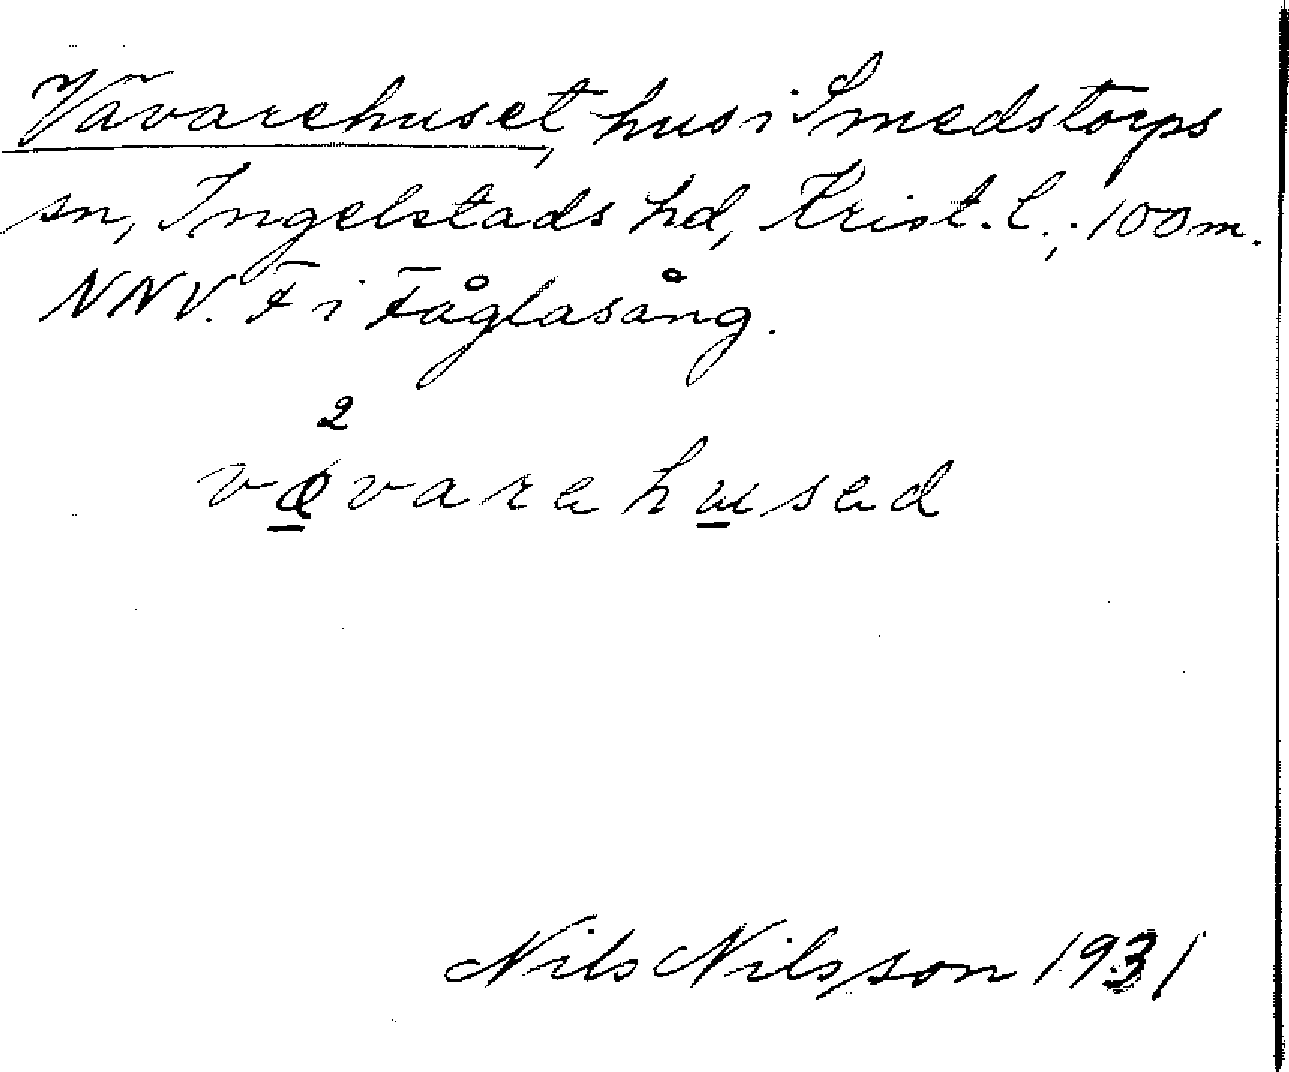 Vävarehuset, hus i Smedstorps
sn, Ingelstads hd, Krist. l.; 100 m.
NNV. F i Fåglasång.
2
vævarehused
Nils Nilsson 1931